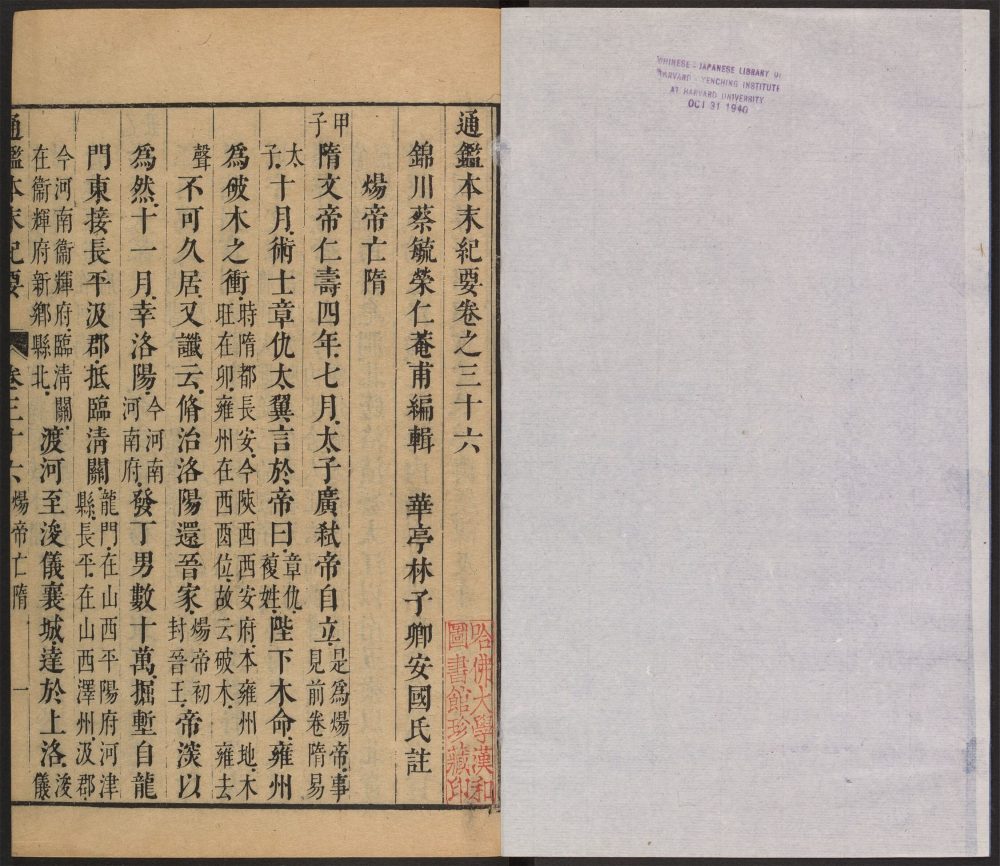 CHINESE - JAPANESE LIBRARY OF
HARVARD - YENCHING INSTITUTE
AT HARVARD UNIVERSITY
OCT 31 1940
通鑑本末紀要卷之三十六
錦川蔡毓榮仁菴甫編輯 華亭林子卿安國氏註
煬帝亡隋
甲子隋文帝仁壽四年七月太子廣弒帝自立是爲煬帝事見前卷隋易
太子十月術士章仇太翼言於帝曰章仇複姓陛下木命雍州
爲破木之衝時隋都長安今陜西西安府本雍州地木旺在卯雍州在西酉位故云破木雍去
聲不可久居又讖云脩治洛陽還晉家煬帝初封晉王帝深以
爲然十一月幸洛陽今河南河南府發丁男數十萬掘塹自龍
門東接長平汲郡抵臨淸關龍門在山西平陽府河津縣長平在山西澤州汲郡
今河南衞輝府臨淸關在衞輝府新鄉縣北渡河至浚儀襄城達於上洛浚儀
通鑑本末紀要 卷三十六 煬帝亡隋 一
哈佛大學漢和圖書館珍藏印